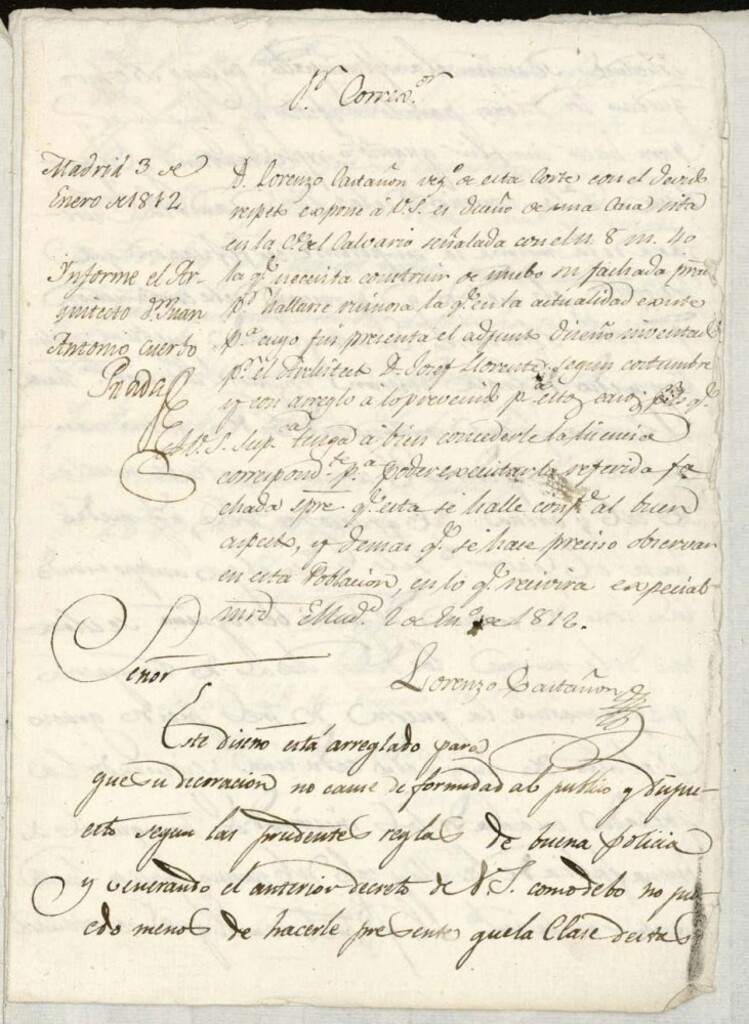 S.r Correx.or
Madrid 3 de
Enero de 1812
Informe el Ar-
quitecto Dn. Juan
Antonio Cuerbo
D. Lorenzo Castañon vez.o de esta Corte con el devido
respeto expone á V.S. es dueño de una Casa sita
en la C.e del Calvario señalada con el n. 8 m. 40
la q.e necesita construir de nuebo su fachada
p.r hallarse ruinosa la q.e en la actualidad existe
p.a cuyo fin presenta el adjunto diseño inventado
p.r el Architecto D. Josef Llorente, segun costumbre
y con arreglo á lo prevenido p.a estos casos q.e
A V.S. Sup.ca tenga á bien concederle la licencia
correspond.te p.a poder executar la referida fa
chada spre q.e esta se halle conf.e al buen
aspecto, y demas q.e se hace preciso observar
en esta Poblacion, en lo q.e recivira especial
mrd. Mad.d 2 de En.o de 1812.
Lorenzo Castañon
Señor
Este diseño está arreglado para
que su decoracion no cause deformidad al publico y dispu-
esto segun las prudentes reglas de buena policia
y venerando el anterior decreto de V.S. como debo no pu-
edo menos de hacerle presente que la Clase de estas